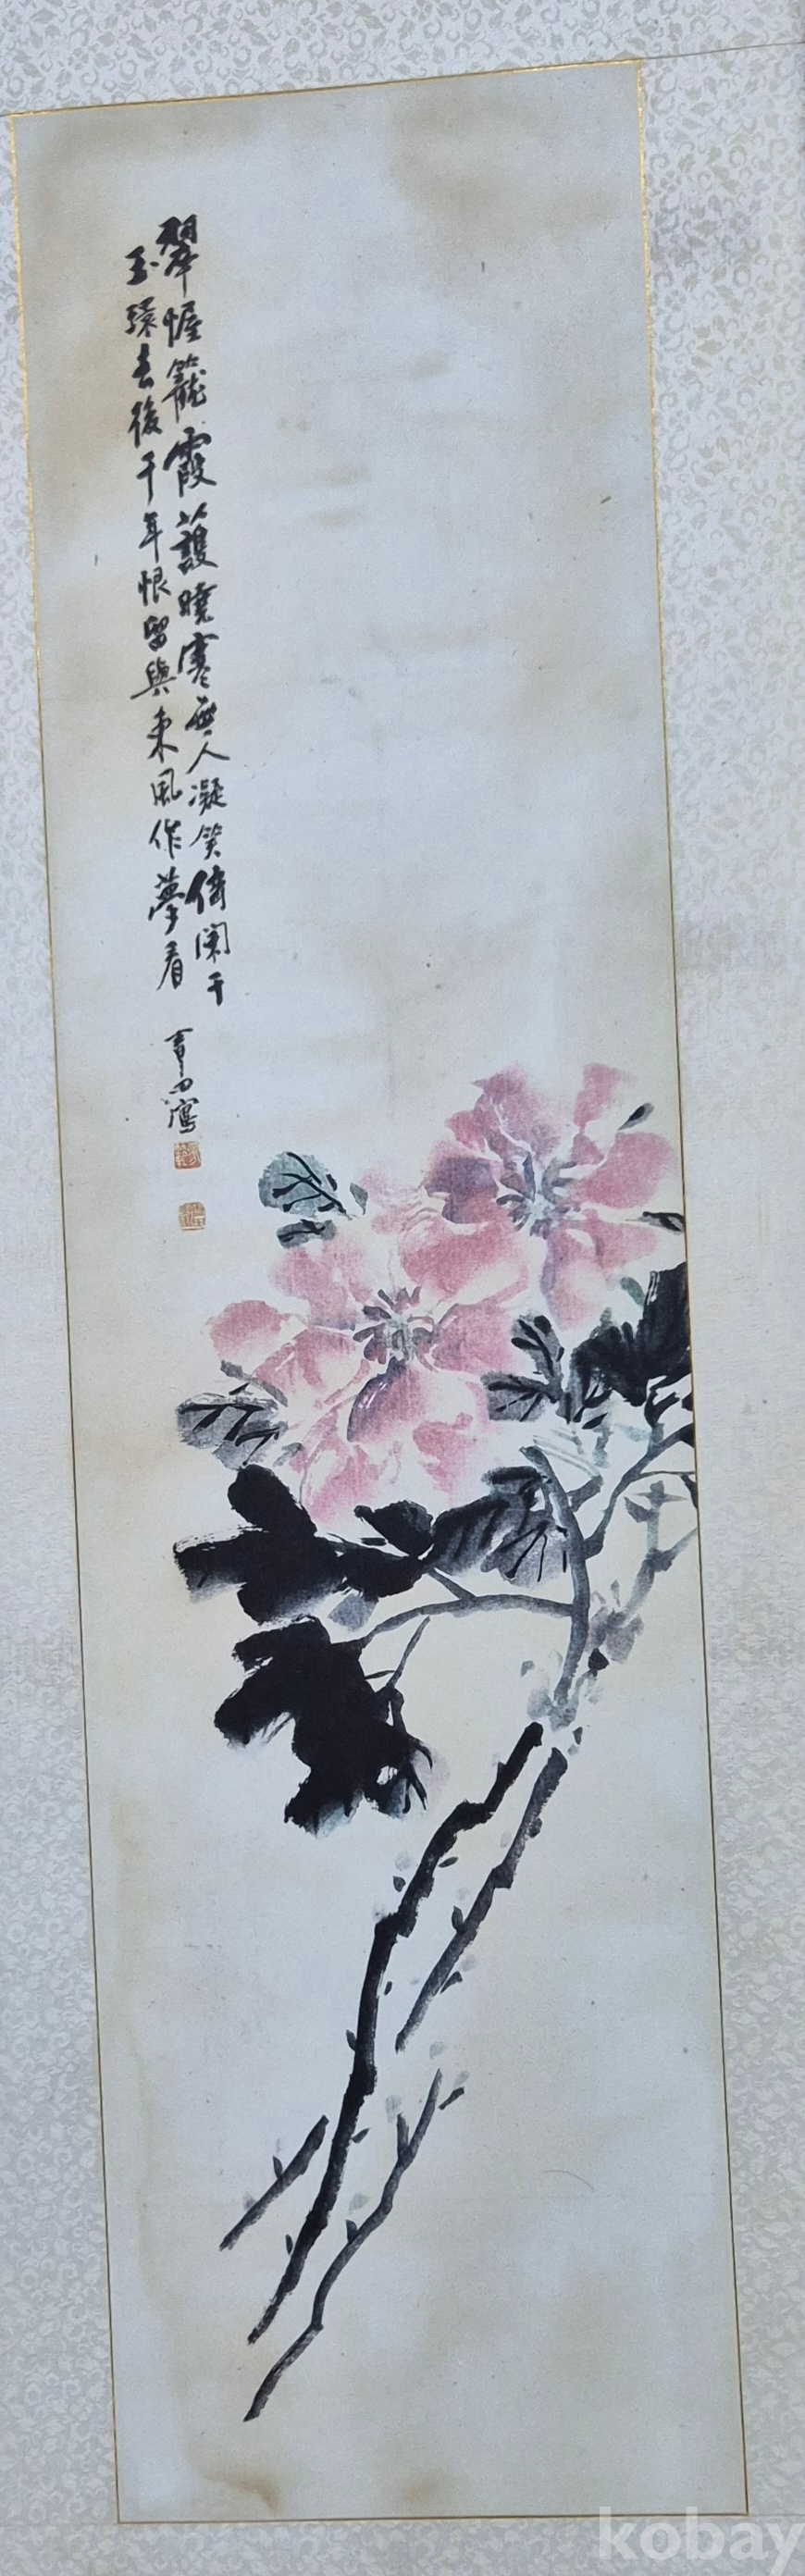 翠幄籠霞護曉寒無人凝笑倚闌干
玉環去後千年恨留與東風作夢看
寫
kobay